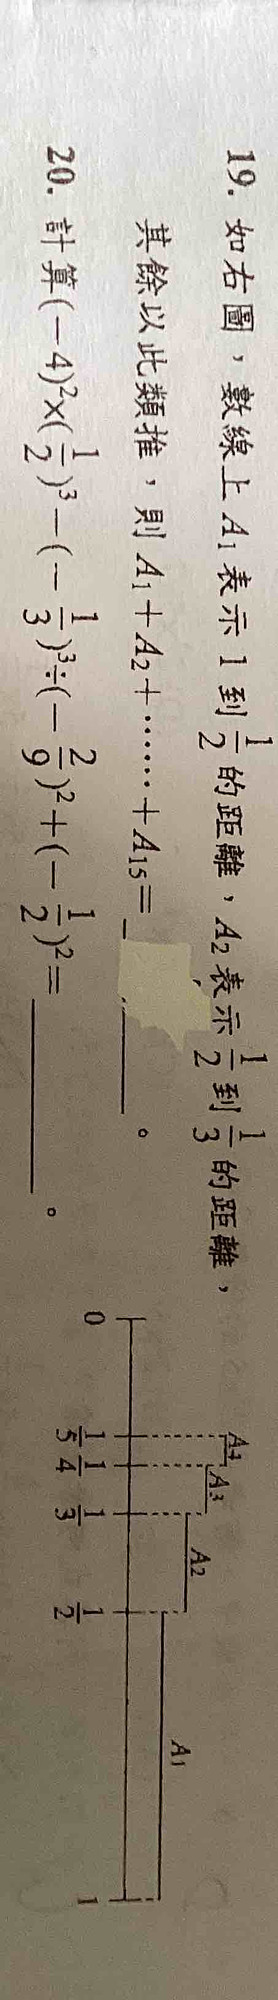 19. 如右圖，數線上 A₁ 表示 1 到 1/2 的距離，A₂ 表示 1/2 到 1/3 的距離，
其餘以此類推，則 A₁＋A₂＋……＋A₁₅＝＿＿＿。
20. 計算(－4)²×(1/2)³－(－1/3)³÷(－2/9)²＋(－1/2)²＝＿＿＿。
A₄
A₃
A₂
A₁
0 1/5 1/4 1/3 1/2 1